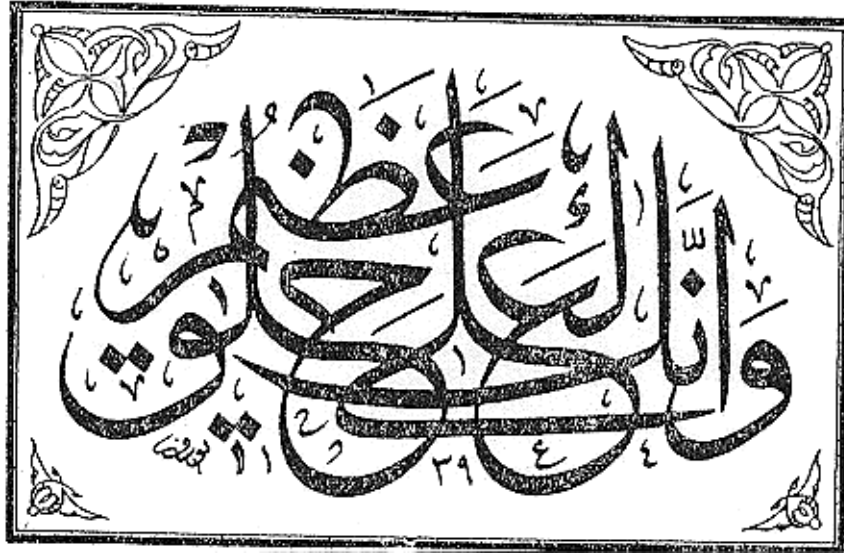 وَاِنَّكَ لَعَلٰى خُلُقٍ عَظِيمٍ
١١ ٣٩